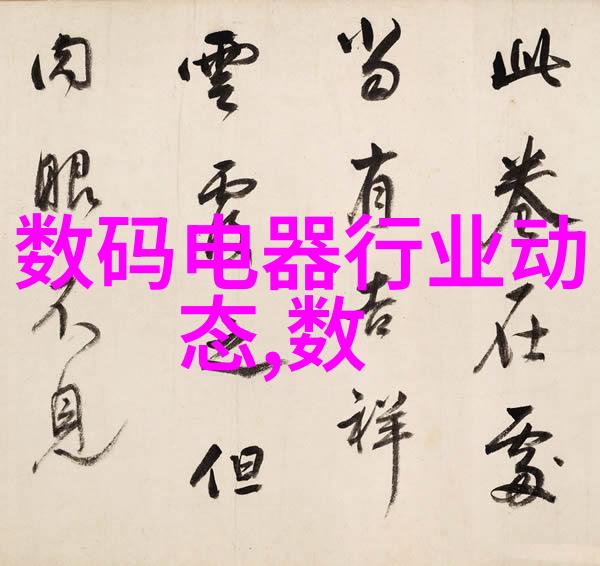 数码电器行业动
态,数
此卷在處
當有吉祥
雲覆之但
肉眼不見